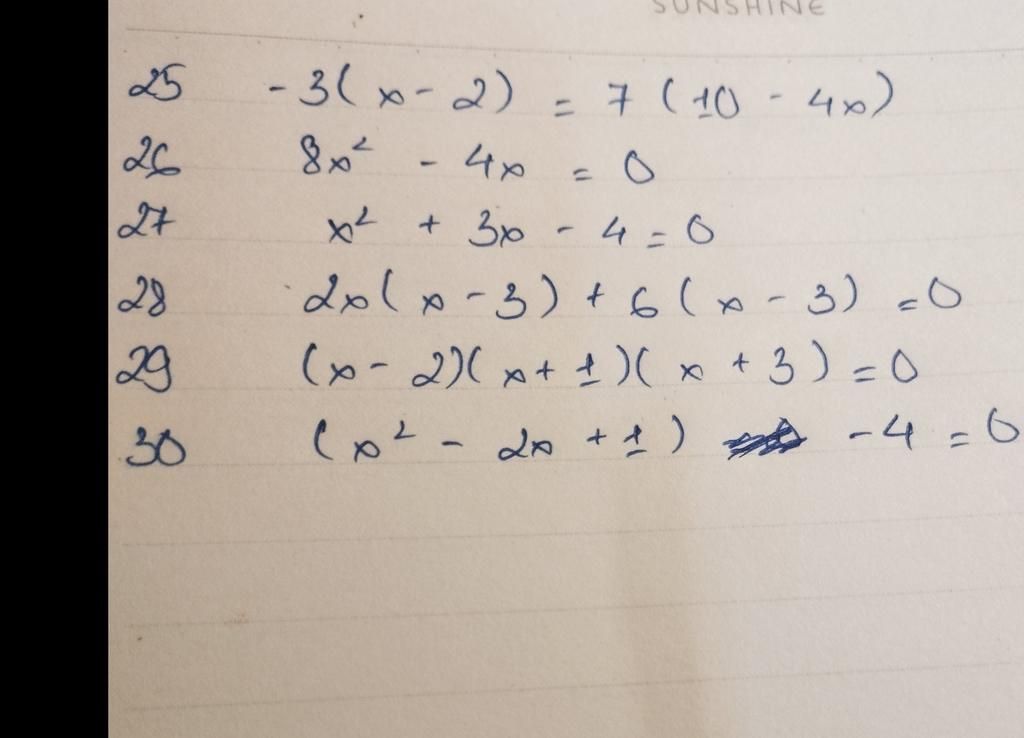 SUNSHINE
25 -3(x-2) = 7(10-4x)
26 8x² - 4x = 0
27 x² + 3x - 4 = 0
28 2x(x-3) + 6(x-3) = 0
29 (x-2)(x+1)(x+3) = 0
30 (x² - 2x + 1) -4 = 0